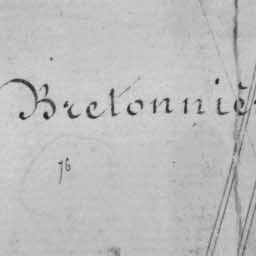 Bretonniè
76